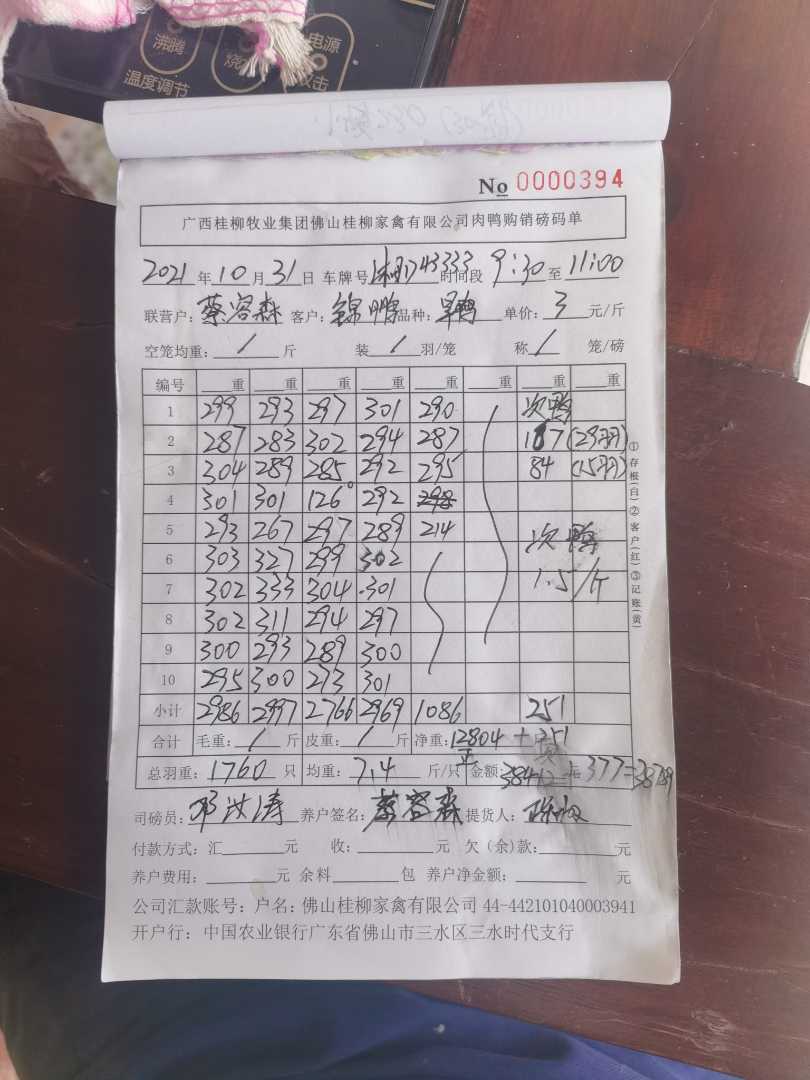 沸腾
电源
温度调节
攻击
No 0000394
广西桂柳牧业集团佛山桂柳家禽有限公司肉鸭购销磅码单
2021年10月31日 车牌号 43333 时间段 9:30至11:00
联营户:蔡容森 客户:锦鹏 品种: 单价:3元/斤
空笼均重:/斤 装/羽/笼 称/笼/磅
编号 重 重 重 重 重 重 重 重
1 299 293 297 301 290 次鸭
2 287 283 302 294 287 167 (29羽)
3 304 289 285 292 295 84 (15羽)
4 301 301 126 292
5 293 267 297 289 214 次鸭
6 303 327 299 302
7 302 333 304 301 1.5/斤
8 302 311 294 297
9 300 293 289 300
10 295 300 273 301
小计 2986 2997 2766 2969 1086 251
合计 毛重:/斤 皮重:/斤 净重:12804+251
总羽重:1760只 均重:7.4斤/只 金额:38412元+377=38789
司磅员:邓洪涛 养户签名:蔡容森 提货人:
付款方式:汇 元 收: 元 欠(余)款: 元
养户费用: 元 余料 包 养户净金额: 元
公司汇款账号:户名:佛山桂柳家禽有限公司 44-442101040003941
开户行:中国农业银行广东省佛山市三水区三水时代支行
①存根(白)②客户(红)③记账(黄)